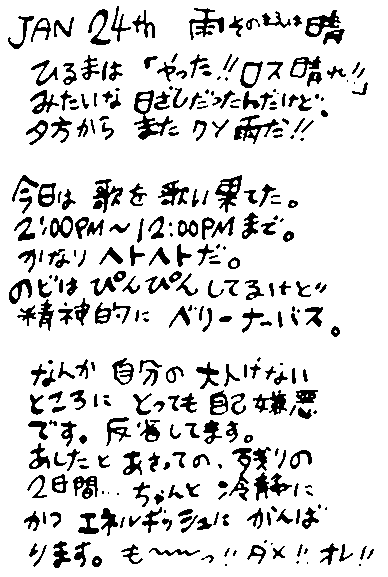 JAN 24th 雨そのまえは晴
ひるまは「やった!!ロス晴れ!!」
みたいな日ざしだったんだけど、
夕方からまたクソ雨だ!!
今日は歌を歌い果てた。
2:00PM〜12:00PMまで。
かなりヘトヘトだ。
のどはぴんぴんしてるけど
精神的にベリーナーバス。
なんか自分の大人げない
ところにとっても自己嫌悪
です。反省してます。
あしたとあさっての、残りの
2日間…ちゃんと冷静に
かつエネルギッシュにがんば
ります。も〜〜っ!!ダメ!!オレ!!